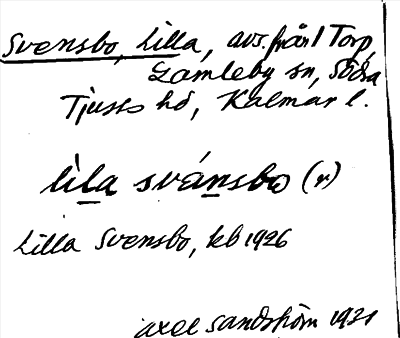 Svensbo, Lilla, avs. från 1 Torp,
Gamleby sn, Södra
Tjusts hd, Kalmar l.
lila svánsbo (r)
Lilla Svensbo, kb 1926
Axel Sandström 1931